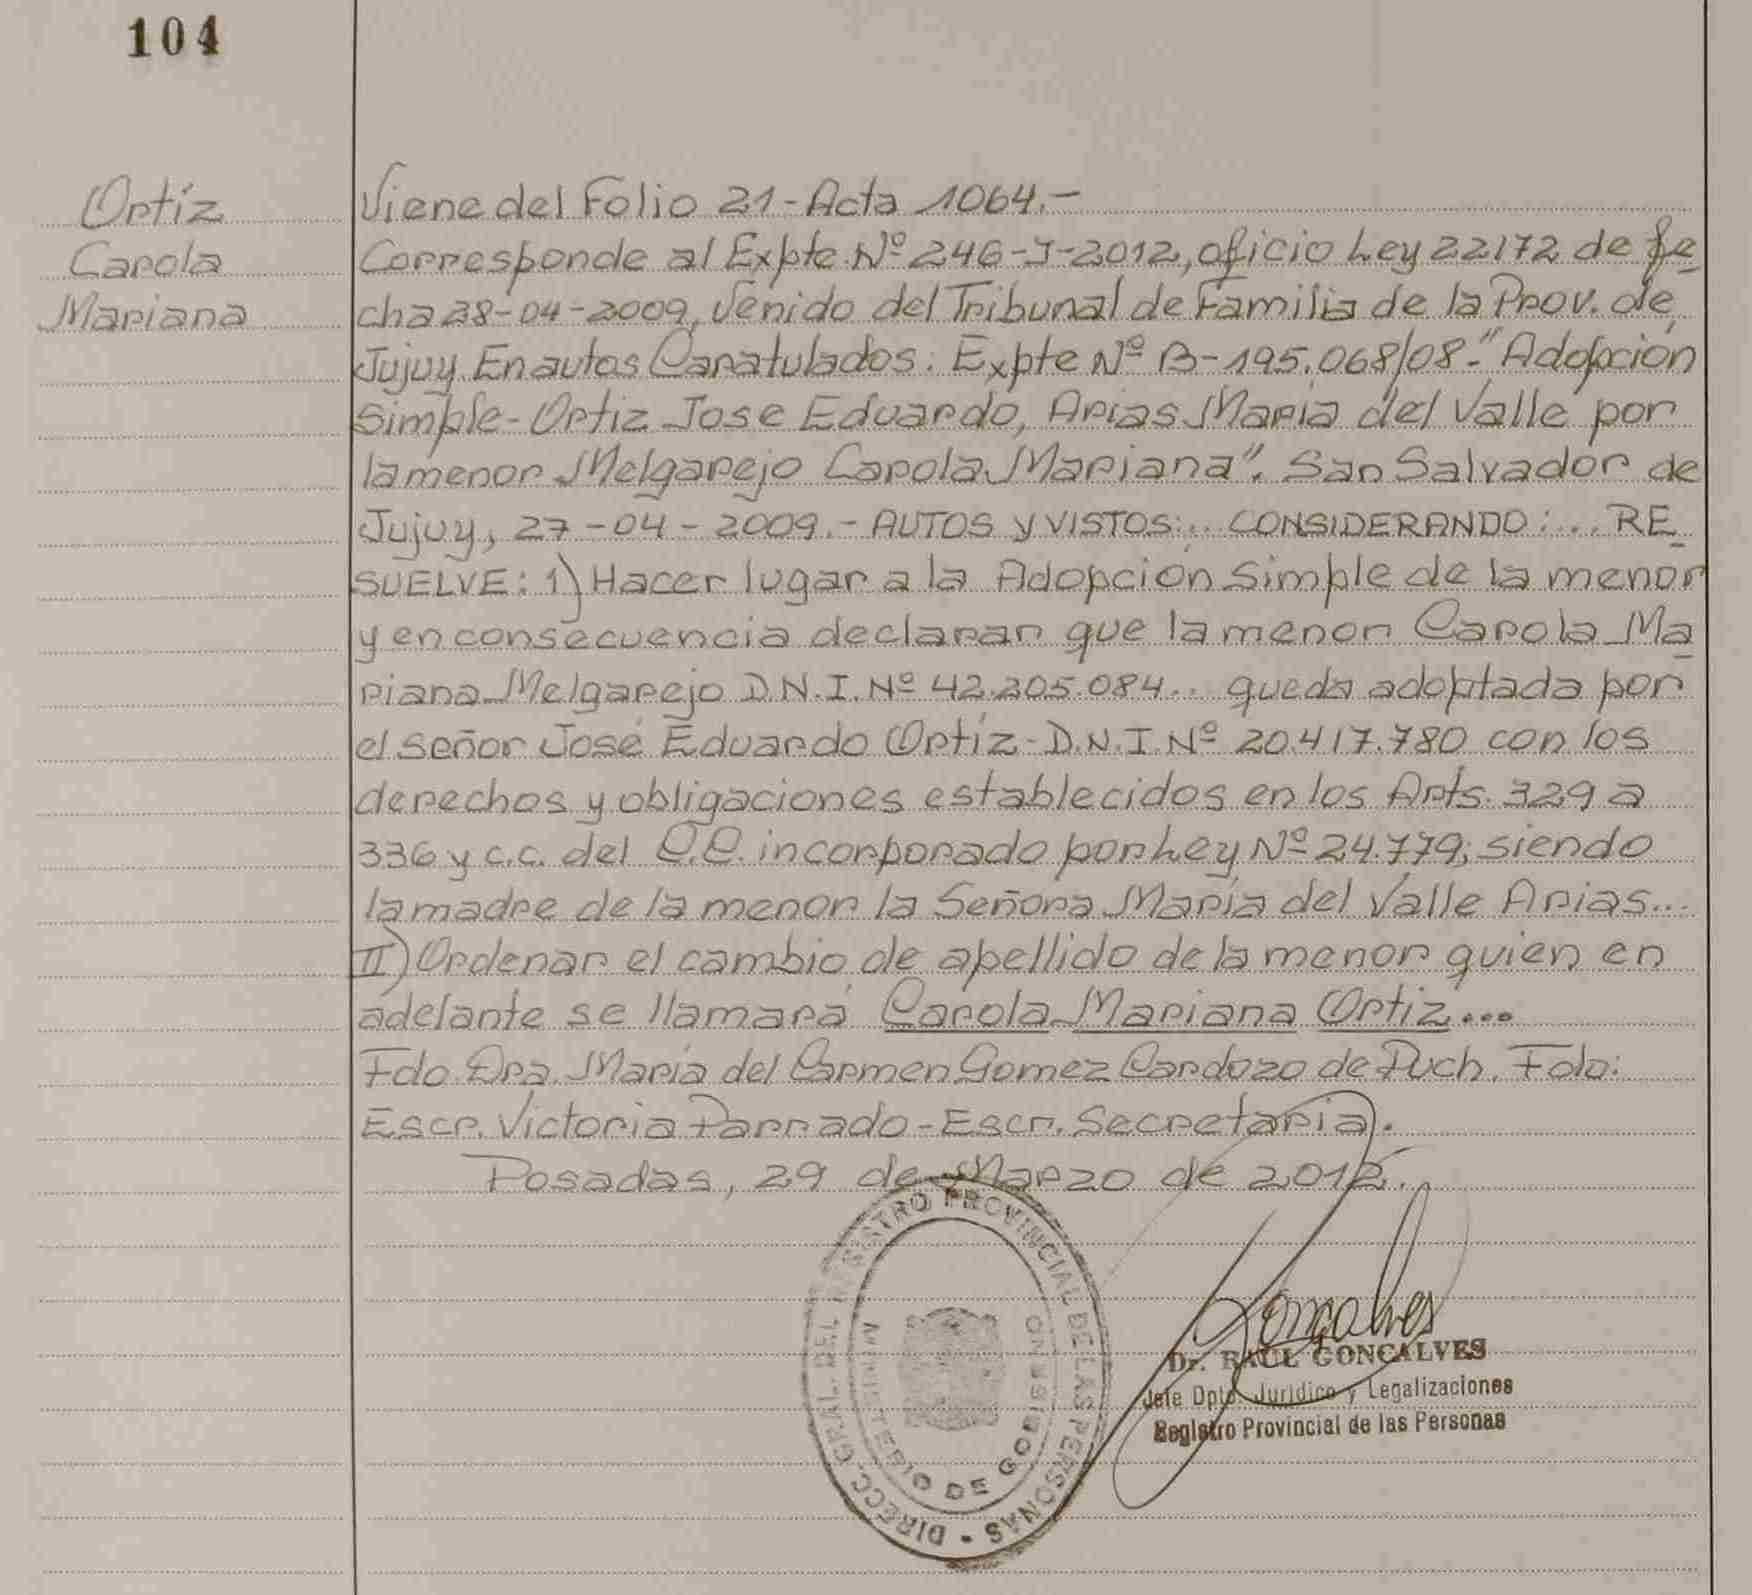 104
Ortíz
Carola
Mariana
Viene del Folio 21 - Acta 1064.-
Corresponde al Expte. Nº 246-J-2012, oficio Ley 22172 de fe
cha 28-04-2009, Venido del Tribunal de Familia de la Prov. de
Jujuy. En autos Caratulados: Expte Nº B-195.068/08-"Adopción
Simple- Ortiz Jose Eduardo, Arias María del Valle por
la menor Melgarejo Carola Mariana". San Salvador de
Jujuy, 27-04-2009.- AUTOS y VISTOS:.. CONSIDERANDO:... RE
SUELVE: 1) Hacer lugar a la Adopción Simple de la menor
y en consecuencia declarar que la menor Carola Ma
riana Melgarejo D.N.I. Nº 42.205.084.. queda adoptada por
el señor José Eduardo Ortíz - D.N.I. Nº 20.417.780 con los
derechos y obligaciones establecidos en los Arts. 329 a
336 y c.c. del C.C. incorporado por Ley Nº 24.779; siendo
la madre de la menor la Señora María del Valle Arias...
II) Ordenar el cambio de apellido de la menor quien en
adelante se llamará Carola Mariana Ortiz...
Fdo. Dra. María del Carmen Gomez Cardozo de Puch. Fdo:
Escr. Victoria Parrado - Escr. Secretaria.
Posadas, 29 de Marzo de 2012.
DIRECC. GRAL. DEL REGISTRO PROVINCIAL DE LAS PERSONAS -
MINISTERIO DE GOBIERNO
Goncalves
Dr. RAUL GONCALVES
Jefe Dpto. Jurídico y Legalizaciones
Registro Provincial de las Personas